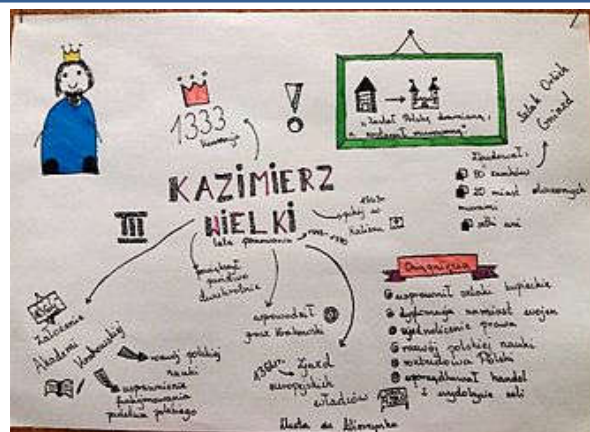 1333
koronacja
!
"Zastał Polskę drewnianą,
a zostawił murowaną"
Szlak Orlich
Gniazd
Zbudował:
20 miast otoczonych
murami
KAZIMIERZ
WIELKI
III
lata panowania
pokój w
Kaliszu
powiększył
państwo
dwukrotnie
założenie
Akademii Krakowskiej
rozwój polskiej
nauki
usprawnienie
funkcjonowania
państwa polskiego
wprowadził
grosz krakowski
1364r. Zjazd
europejskich
władców
Uczta u Wierzynka
Osiągnięcia
usprawnił szlaki kupieckie
dyplomacja zamiast wojen
ujednolicenie prawa
rozwój polskiej nauki
rozbudowa Polski
uporządkował handel
i wydobycie soli